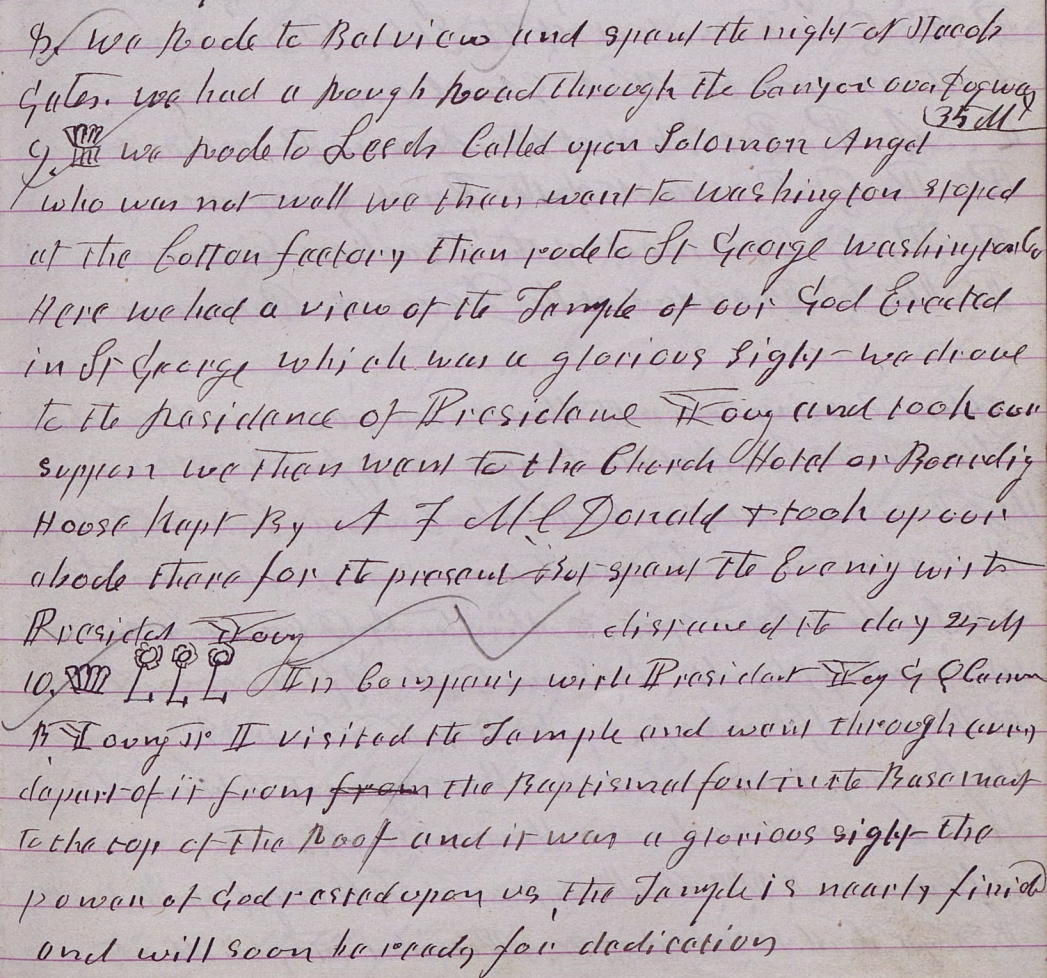 8. We rode to Belview and spent the night at Jacob
Gates. we had a rough road through the Canyon over Dogway
35 M
9. we rode to Leeds Called upon Solomon Angel
who was not well we then went to Washington stoped
at the Cotton factory then rode to St George Washington Co
Here we had a view of the Temple of our God Erected
in St George which was a glorious sight we drove
to the residence of President Young and took our
supper we then went to the Church Hotel or Boardig
House Kept By A F McDonald & took up our
abode there for the present But spent the Evenig with
President Young distance of the day 25 M
10. In Company with President Young &
B Young jr I visited the Temple and went through evry
depart of it from from the Baptismal font in the Basement
to the top of the Roof and it was a glorious sight the
power of God rested upon us the Temple is nearly finish
and will soon be ready for dedication